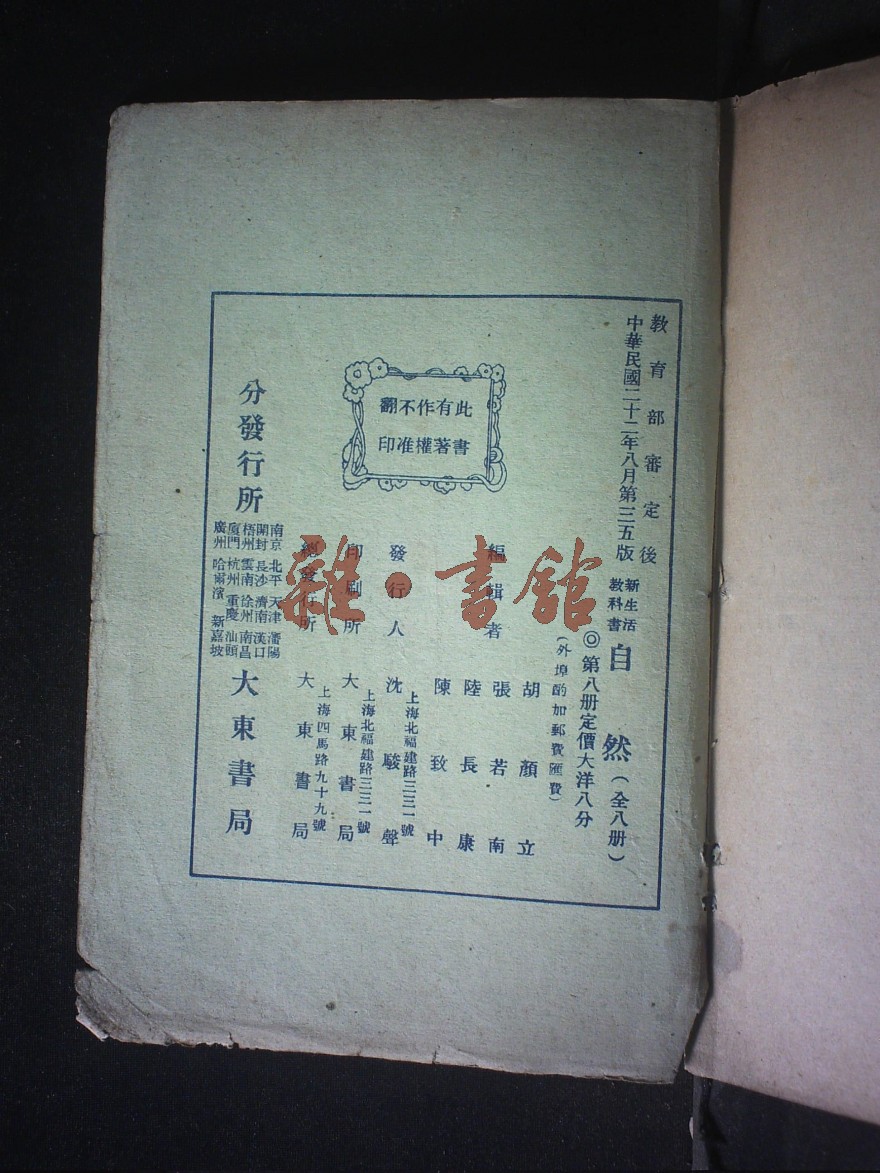 教育部審定後
中華民國二十二年八月第三五版
新生活
教科書
自然（全八册）
◎第八册定價大洋八分
（外埠酌加郵費匯費）
編輯者
胡顏立
張若南
陸長康
陳致中
發行人
上海北福建路三三一號
沈駿聲
印刷所
上海北福建路三三一號
大東書局
總發行所
上海四馬路九十九號
大東書局
此書
有著
作權
不准
翻印
分發行所
南京 北平 天津 瀋陽
開封 長沙 濟南 漢口
梧州 雲南 徐州 南昌
廈門 杭州 重慶 汕頭
廣州 哈爾濱 新嘉坡
大東書局
雜·書館